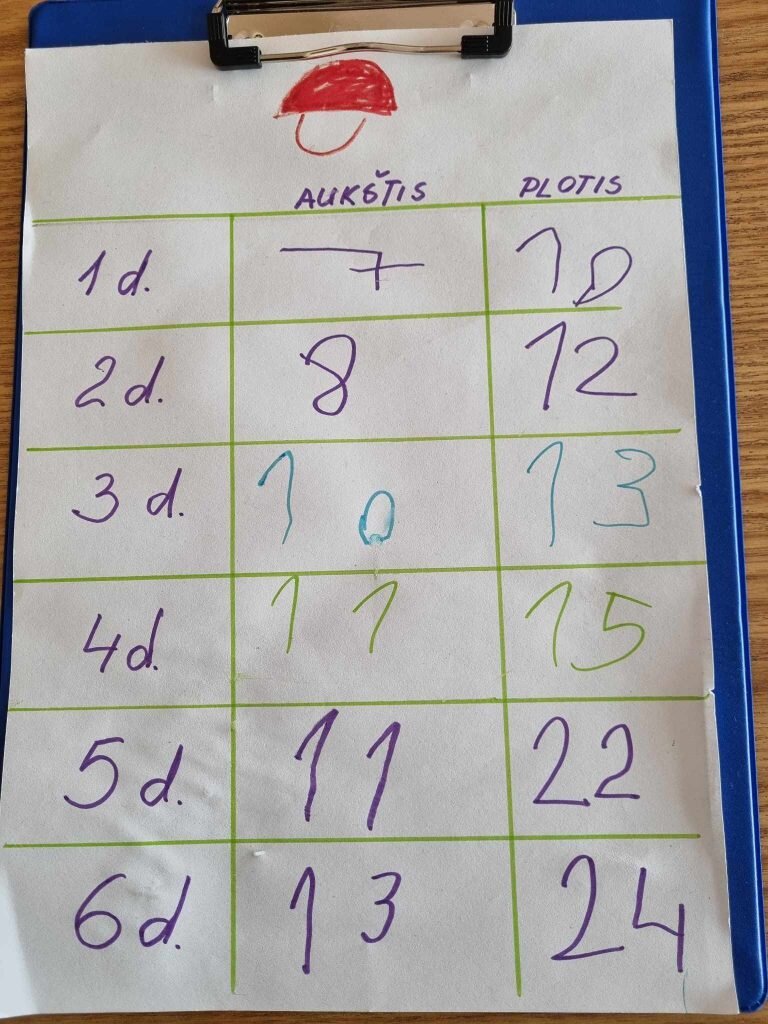 AUKŠTIS PLOTIS
1 d. 7 10
2 d. 8 12
3 d. 10 13
4 d. 11 15
5 d. 11 22
6 d. 13 24